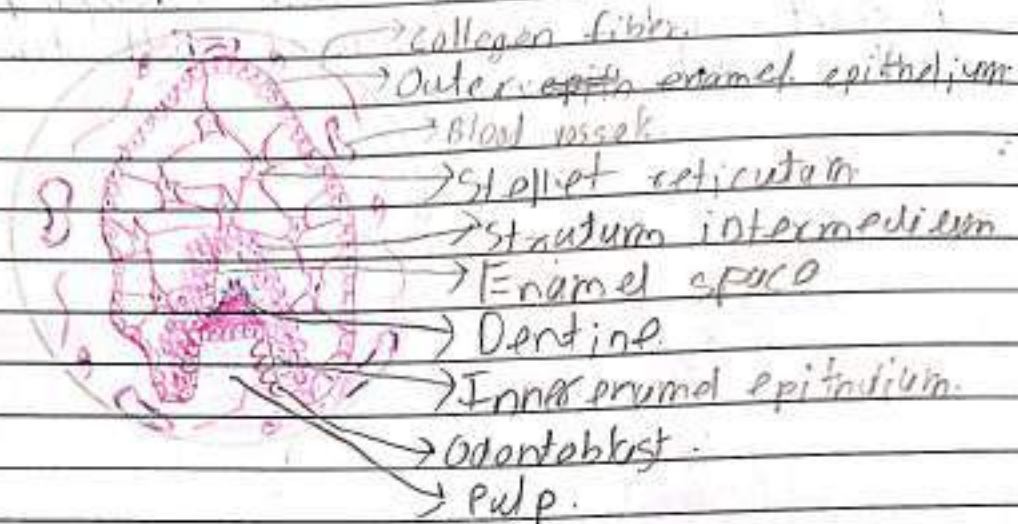 Collegen fiber.
Outer epith enamel epithelium
Blood vessel.
Stellet reticutam
Strutum intermedium
Enamel space
Dentine.
Inner enumel epithelium.
Odontoblast.
Pulp.